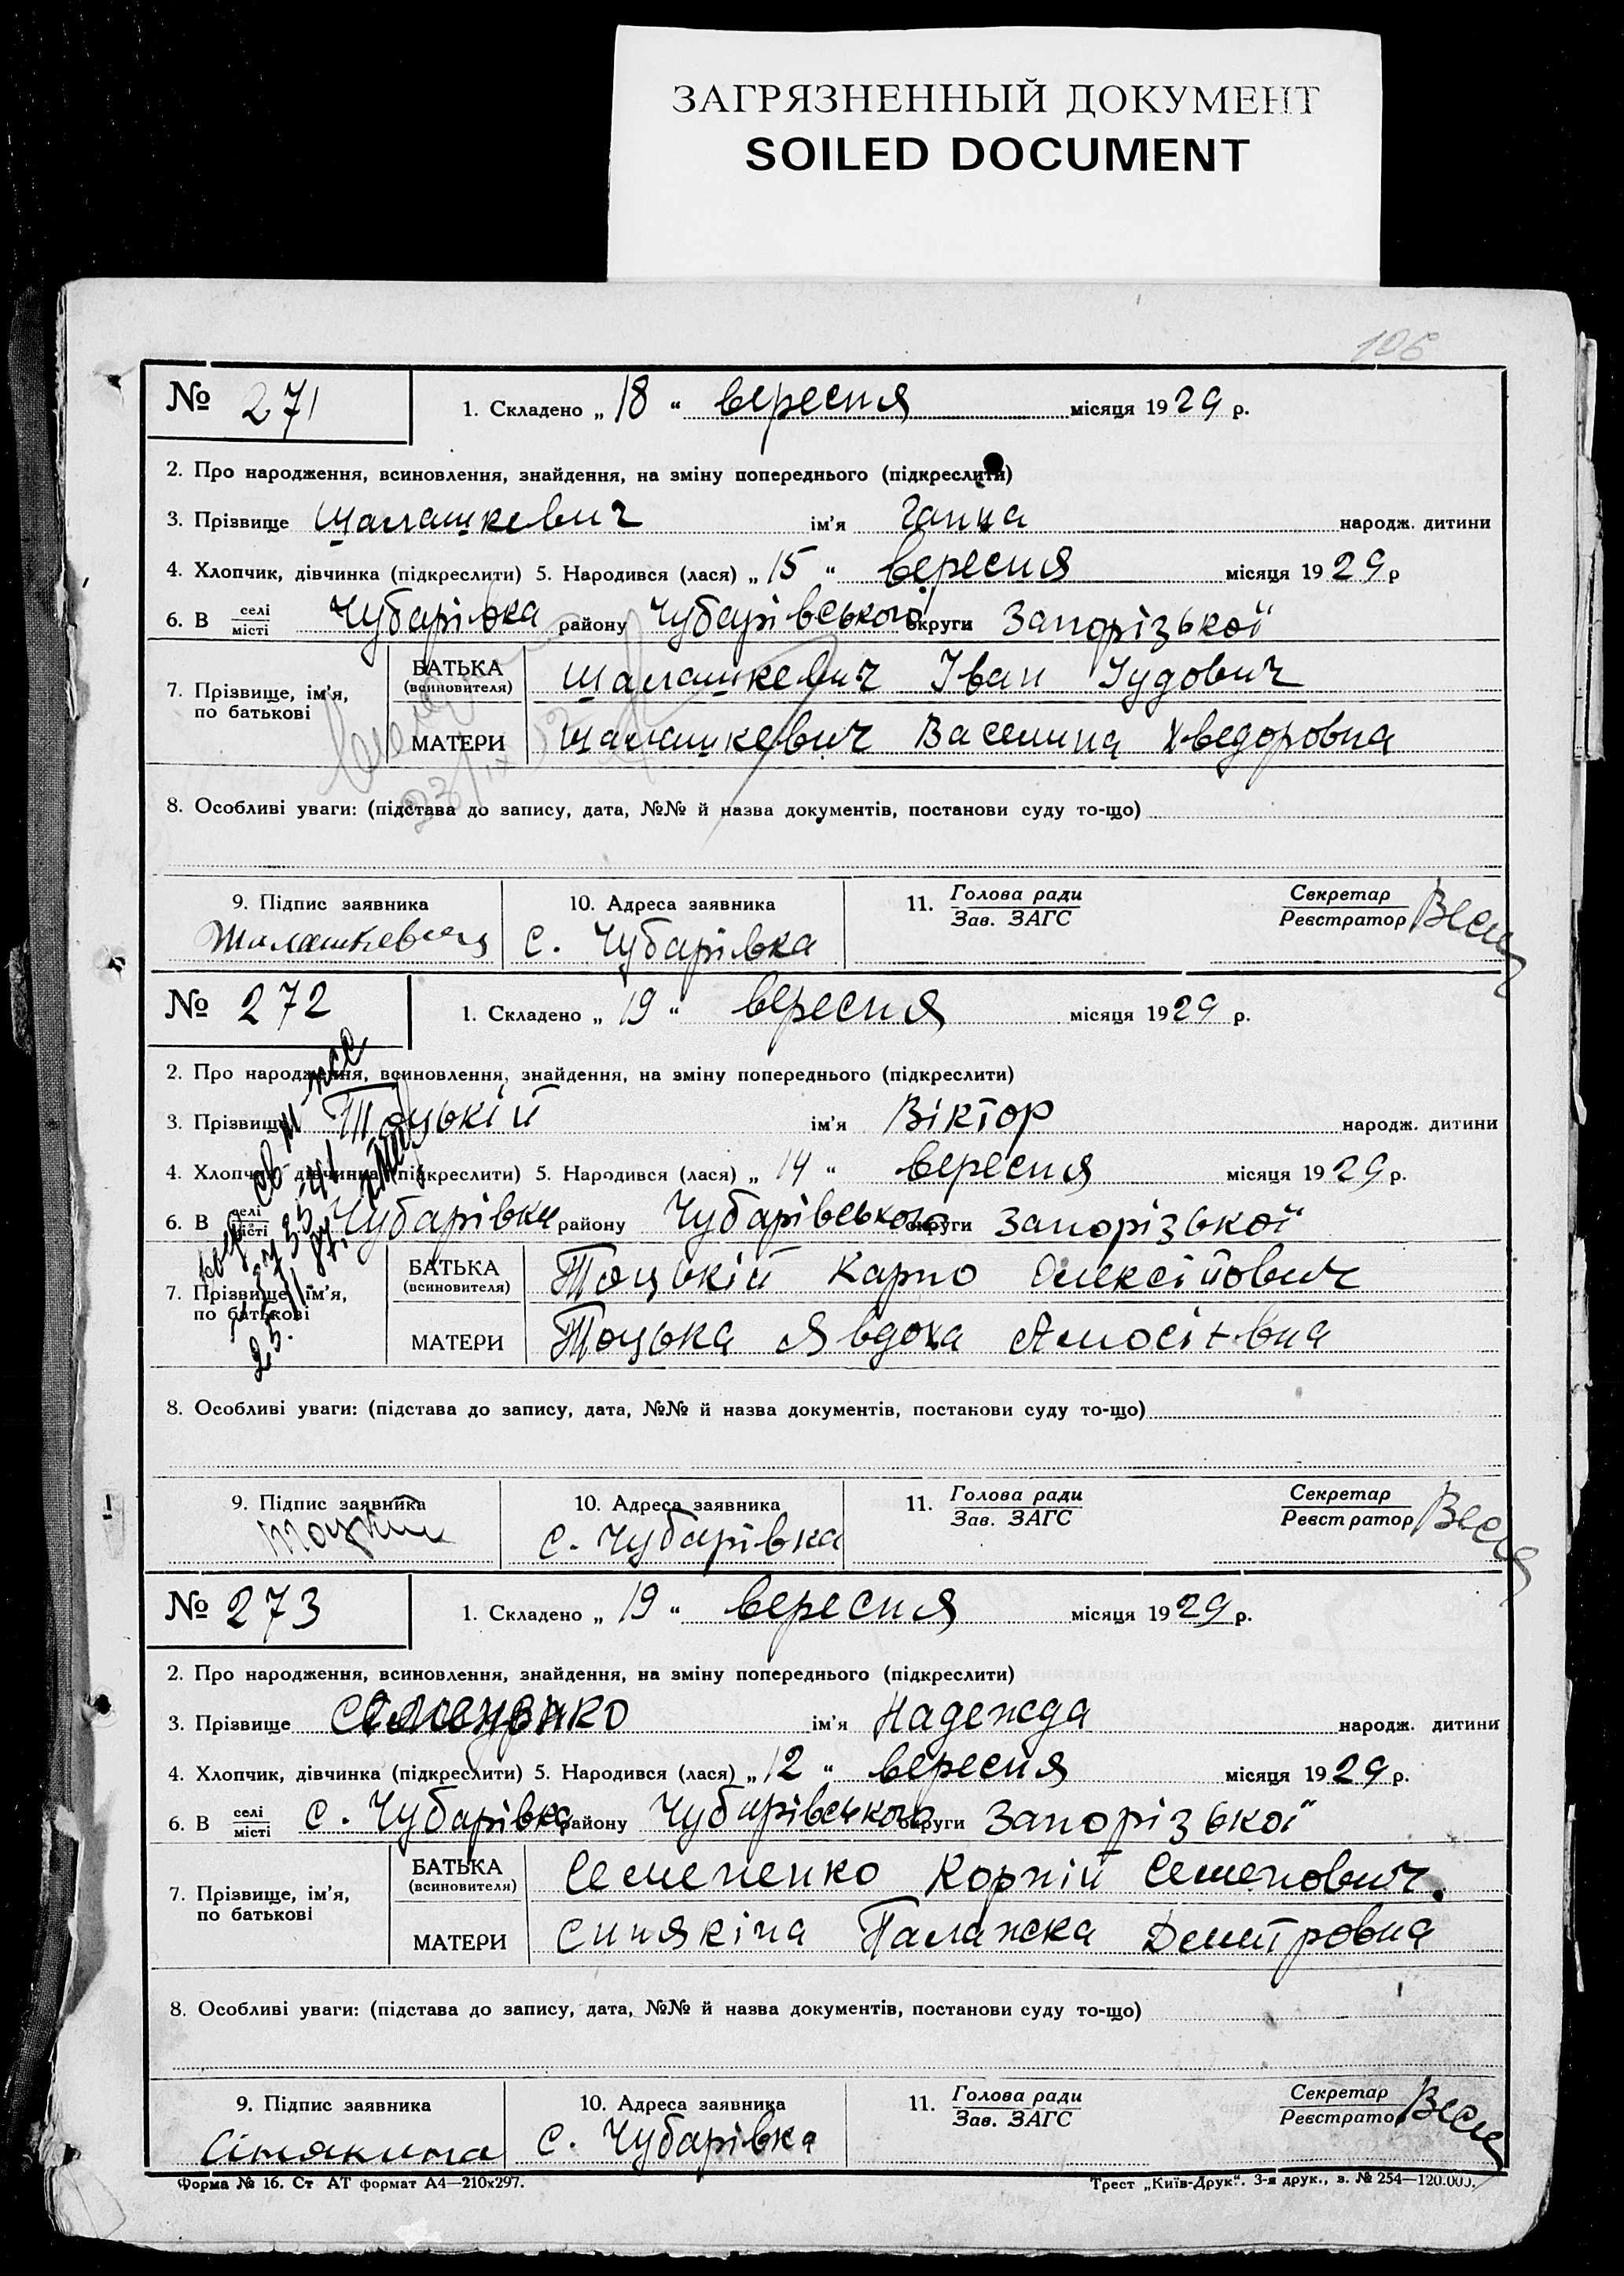 ЗАГРЯЗНЕННЫЙ ДОКУМЕНТ
SOILED DOCUMENT
106
№ 271 1. Складено „ 18 “ вересня місяця 1929 р.
2. Про народження, всиновлення, знайдення, на зміну попереднього (підкреслити)
3. Прізвище Шалашкевич ім'я Ганна народж. дитини
4. Хлопчик, дівчинка (підкреслити) 5. Народився (лася) „ 15 “ вересня місяця 1929 р
6. В селі/місті Чубарівка району Чубарівського округи Запорізької
7. Прізвище, ім'я, по батькові БАТЬКА (всиновителя) Шалашкевич Іван Іудович
МАТЕРИ Шалашкевич Василина Хведоровна
8. Особливі уваги: (підстава до запису, дата, №№ й назва документів, постанови суду то-що)
9. Підпис заявника 10. Адреса заявника 11. Голова ради/Зав. ЗАГС Секретар/Реєстратор
с. Чубарівка
№ 272 1. Складено „ 19 “ вересня місяця 1929 р.
2. Про народження, всиновлення, знайдення, на зміну попереднього (підкреслити)
3. Прізвище Тоцький ім'я Віктор народж. дитини
4. Хлопчик, дівчинка (підкреслити) 5. Народився (лася) „ 14 “ вересня місяця 1929 р.
6. В селі/місті Чубарівки району Чубарівського округи Запорізької
7. Прізвище, ім'я, по батькові БАТЬКА (всиновителя) Тоцькій Карпо Олексійович
МАТЕРИ Тоцька Явдоха
8. Особливі уваги: (підстава до запису, дата, №№ й назва документів, постанови суду то-що)
9. Підпис заявника 10. Адреса заявника 11. Голова ради/Зав. ЗАГС Секретар/Реєстратор
с. Чубарівка
№ 273 1. Складено „ 19 “ вересня місяця 1929 р.
2. Про народження, всиновлення, знайдення, на зміну попереднього (підкреслити)
3. Прізвище ім'я Надежда народж. дитини
4. Хлопчик, дівчинка (підкреслити) 5. Народився (лася) „ 12 “ вересня місяця 1929 р.
6. В селі/місті с. Чубарівка району Чубарівського округи Запорізької
7. Прізвище, ім'я, по батькові БАТЬКА (всиновителя) Семененко Корній Семенович.
МАТЕРИ Синякіна Палажка Демитровна
8. Особливі уваги: (підстава до запису, дата, №№ й назва документів, постанови суду то-що)
9. Підпис заявника 10. Адреса заявника 11. Голова ради/Зав. ЗАГС Секретар/Реєстратор
Сінякина с. Чубарівка
Форма № 16. Ст АТ формат А4—210х297. Трест „Київ-Друк“. 3-я друк., з. № 254—120.000.